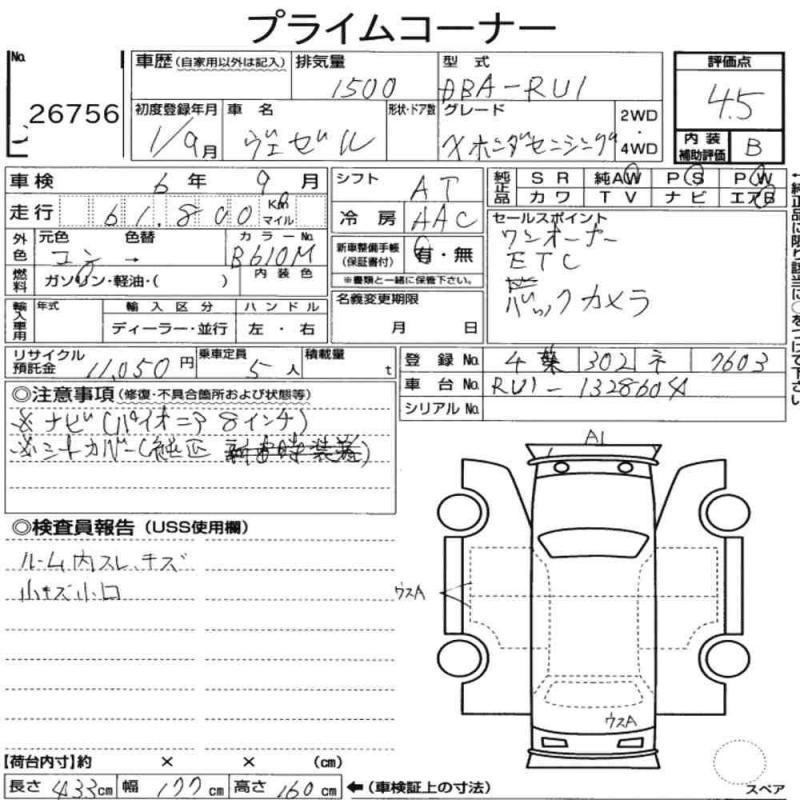 プライムコーナー
No.
26756
車歴 (自家用以外は記入) 排気量 型式
1500 DBA-RU1
初度登録年月 車名 形状・ドア数 グレード 2WD・4WD
1/9月 ヴェゼル Xホンダセンシング
評価点
4.5
内装補助評価 B
車検 6年 9月
走行 61,800 Km マイル
外色 元色 色替 カラーNo.
コン → B610M
燃料 ガソリン・軽油・( ) 内装色
輸入車用 年式 輸入区分 ハンドル
ディーラー・並行 左・右
シフト AT
冷房 AAC
新車整備手帳(保証書付) 有・無
※書類と一緒に保管下さい。
名義変更期限
月 日
純正品 SR 純AW PS PW
カワ TV ナビ エアB
セールスポイント
ワンオーナー
ETC
バックカメラ
←純正品に限り該当に○をつけて下さい
リサイクル預託金 11,050円 乗車定員 5人 積載量 t
登録No. 千葉 302 ネ 7603
車台No. RU1-1328604
シリアルNo.
◎注意事項 (修復・不具合箇所および状態等)
※ナビ(パイオニア 8インチ)
※シートカバー(純正 新車時装着)
◎検査員報告 (USS使用欄)
ルーム内スレ、キズ
小キズ小凹
A1
ウスA
ウスA
スペア
【荷台内寸】約 × × (cm)
長さ 433cm 幅 177cm 高さ 160cm ←(車検証上の寸法)